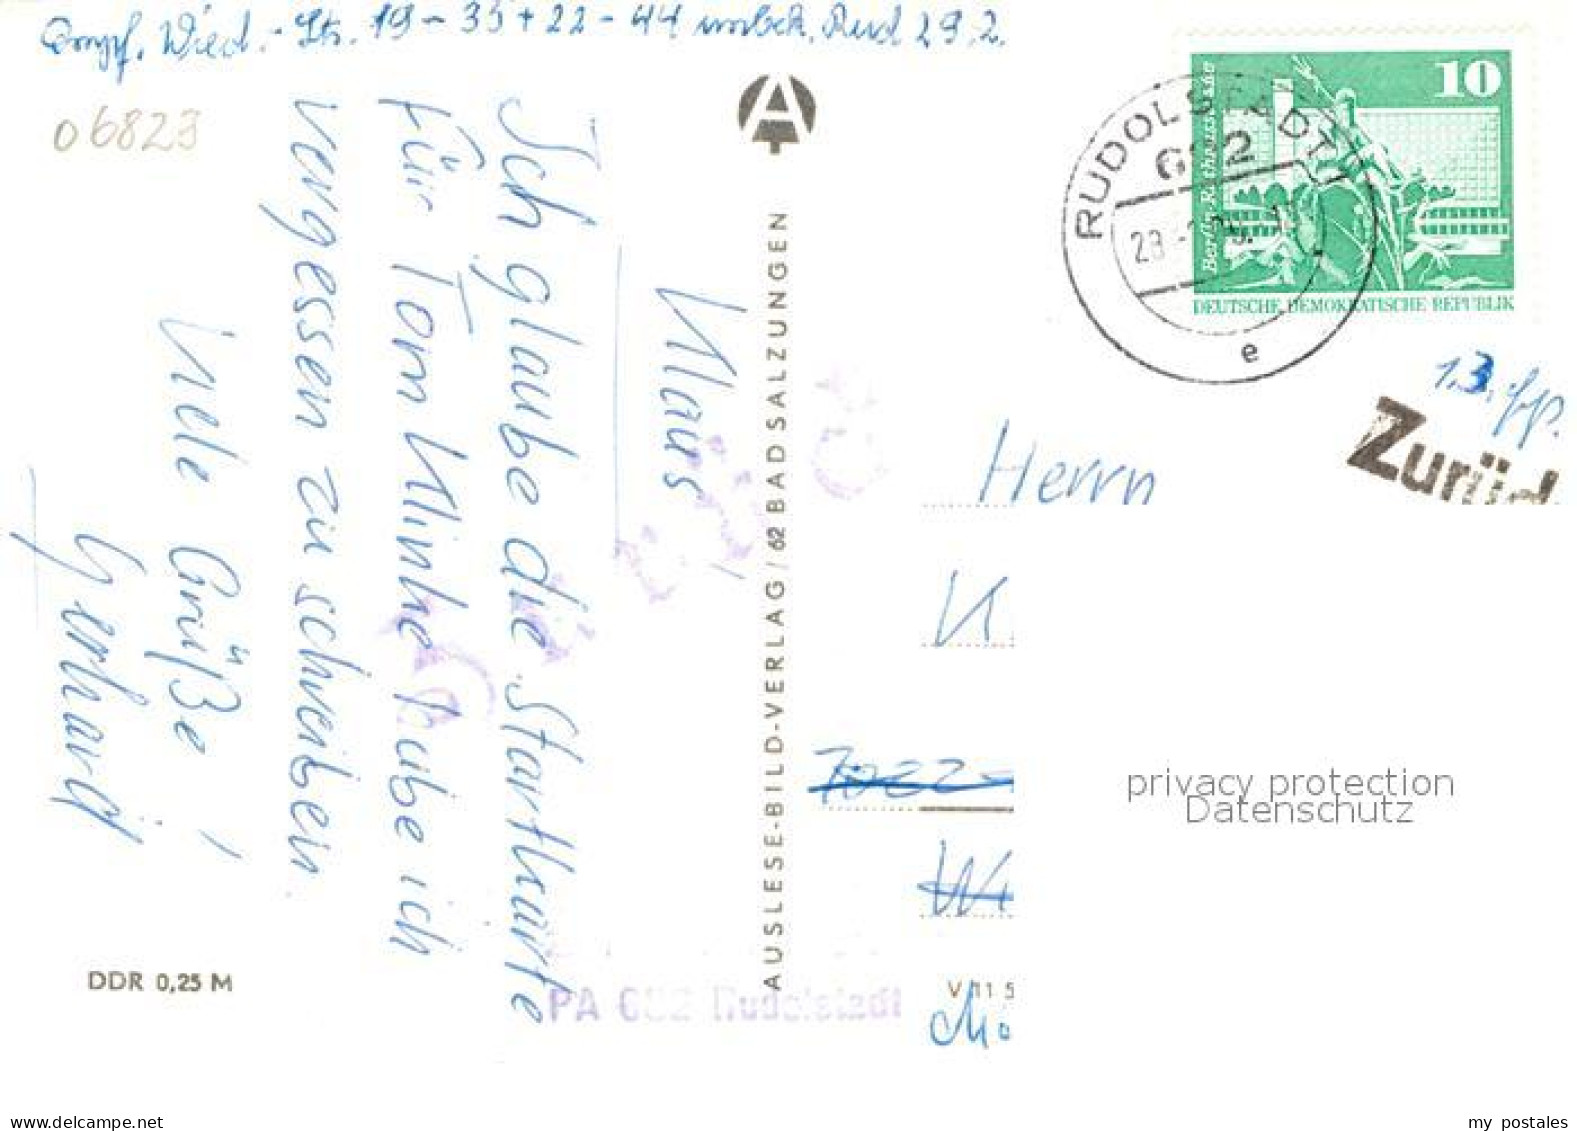 Empf. Wied.-Str. 19 - 35 + 22 - 44 unbek. Rud 29.2.
06823
Klaus,
Ich glaube die Startkarte
für Torn Minke habe ich
vergessen zu schreiben.
Viele Grüße,
Gerhard
DDR 0,25 M
A
AUSLESE-BILD-VERLAG / 62 BAD SALZUNGEN
10
Berlin, Rathausstraße
DEUTSCHE DEMOKRATISCHE REPUBLIK
RUDOLSTADT
e
1.3.
Zurück
Herrn
K
7022
Wi
V 11 5
PA 682 Rudolstadt
privacy protection
Datenschutz
www.delcampe.net
my_postales